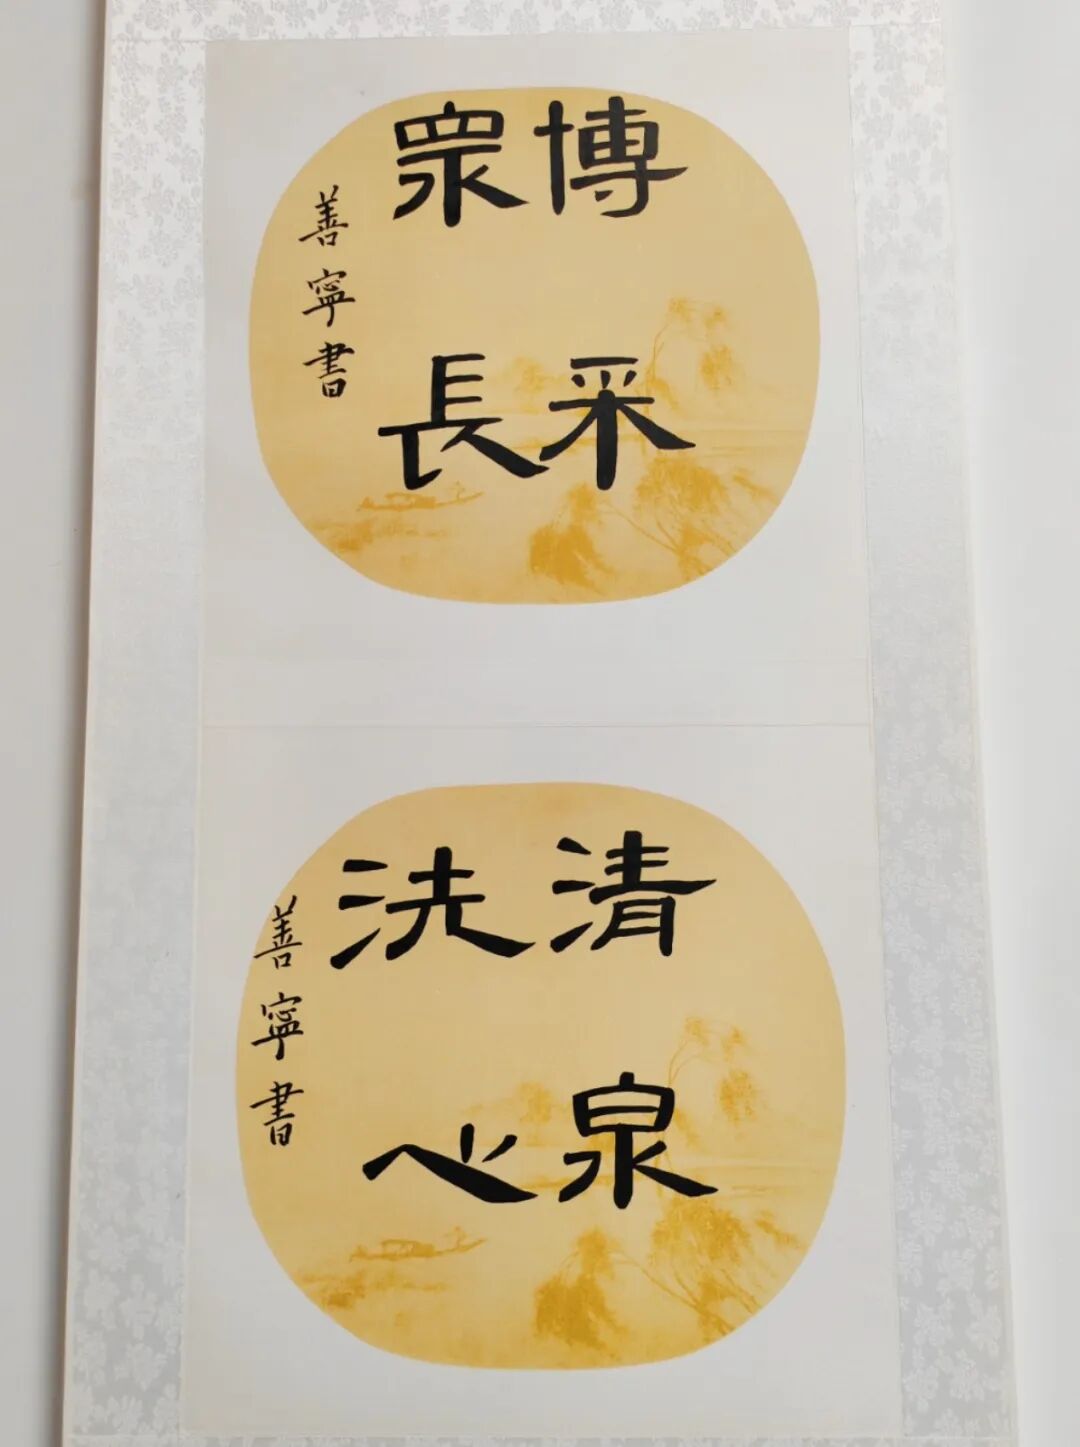 博采
衆長
善寧書
清泉
洗心
善寧書